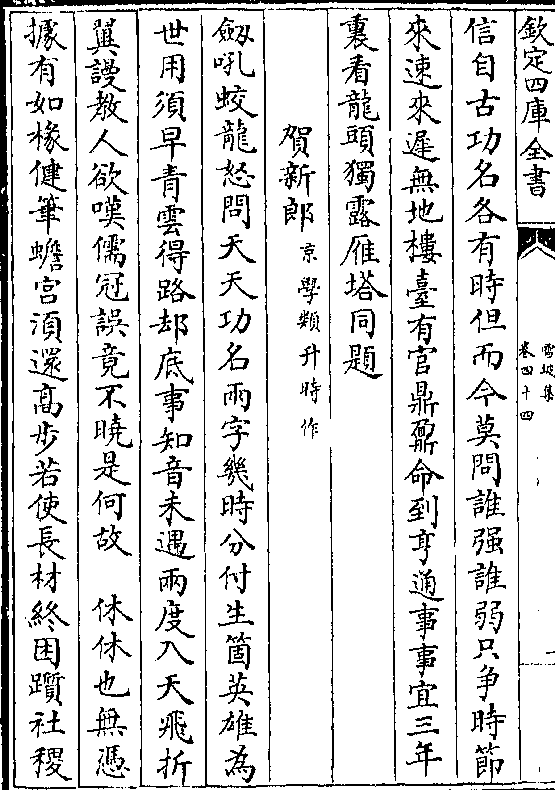 欽定四庫全書
雪坡集
卷四十四
信自古功名各有時但而今莫問誰强誰弱只争時節
來速來遲無地樓臺有官鼎鼐命到亨通事事宜三年
裏看龍頭獨露雁塔同題
賀新郎京學類升時作
劔吼蛟龍怒問天天功名兩字幾時分付生箇英雄為
世用須早青雲得路却底事知音未遇兩度入天飛折
翼謾教人欲嘆儒冠誤竟不曉是何故　休休也無憑
據有如椽健筆蟾宫須還高步若使長材終困躓社稷